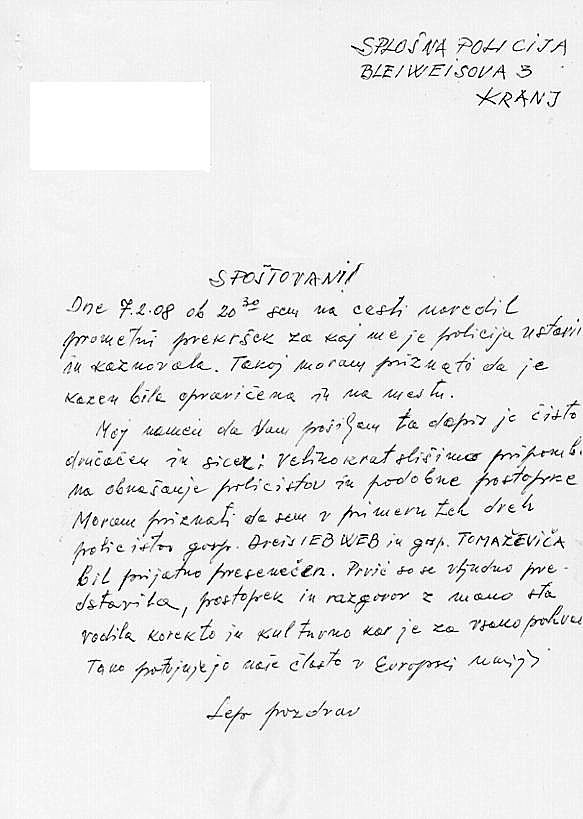 SPLOŠNA POLICIJA
BLEIWEISOVA 3
KRANJ
SPOŠTOVANI!
Dne 7.2.08 ob 20 30 sem na cesti naredil
prometni prekršek za kaj me je policija ustavi
in kaznovala. Takoj moram priznati da je
kazen bila opravičena in na mestu.
Moj namen da Vam pošiljam ta dopis je čisto
drugačen in sicer: Velikokrat slišimo pripomb
na obnašanje policistov in podobne postopke
Moram priznati da sem v primeru teh dveh
policistov gosp. WEB in gosp. TOMAŽEVIČA
bil prijatno presenečen. Prvič so se vljudno pre-
dstavila, postopek in razgovor z mano sta
vodila korekto in kulturno kar je za vsako pohva
Tako potujejo naše v Evropski uniji
Lep pozdrav